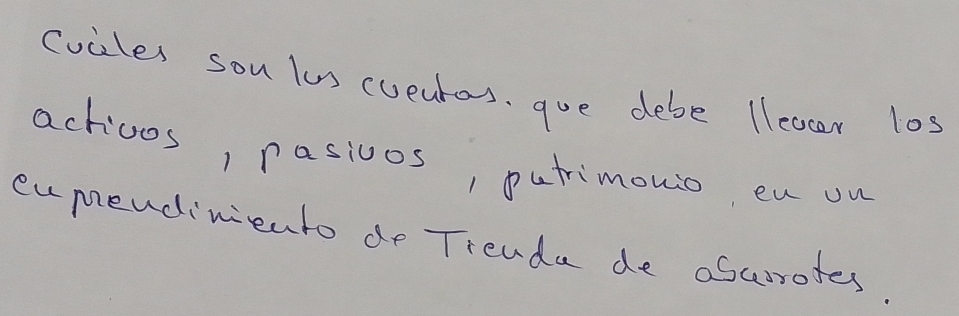 Cuáles son las cuentas. que debe llevar los
activos, pasivos, patrimonio, en un
emprendimiento de Tienda de abarrotes.